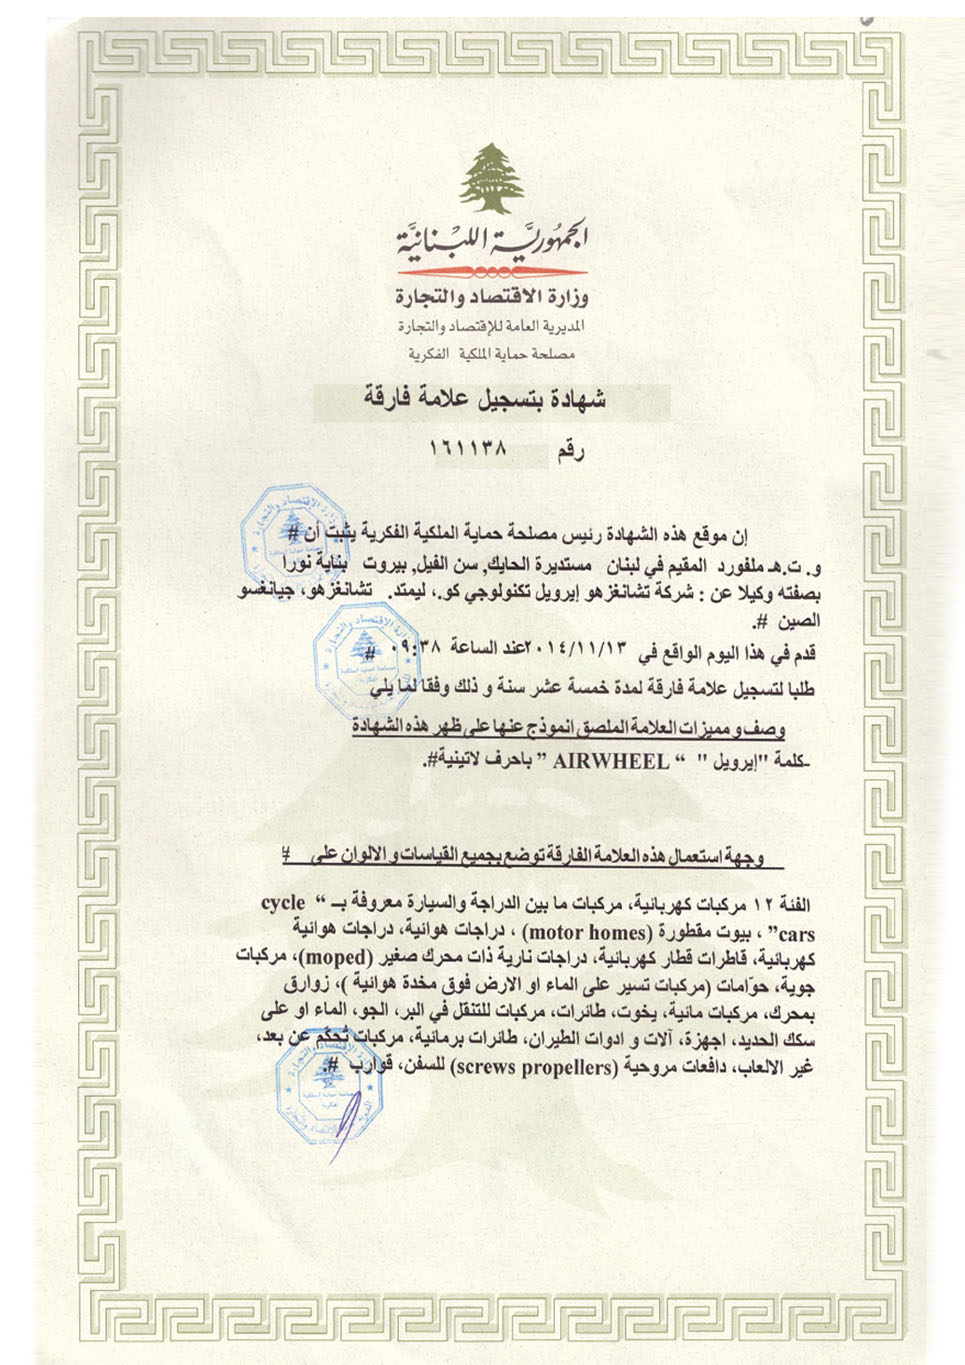 الجمهورية اللبنانية
وزارة الاقتصاد والتجارة
المديرية العامة للإقتصاد والتجارة
مصلحة حماية الملكية الفكرية
شهادة بتسجيل علامة فارقة
رقم ١٦١١٣٨
إن موقع هذه الشهادة رئيس مصلحة حماية الملكية الفكرية يثبت أن #
و. ت.هـ ملفورد المقيم في لبنان مستديرة الحايك, سن الفيل, بيروت بناية نورا
بصفته وكيلا عن : شركة تشانغزهو إيرويل تكنولوجي كو.، ليمتد. تشانغزهو، جيانغسو
الصين #.
قدم في هذا اليوم الواقع في ٢٠١٤/١١/١٣عند الساعة ٠٩:٣٨ #
طلبا لتسجيل علامة فارقة لمدة خمسة عشر سنة و ذلك وفقا لما يلي
وصف و مميزات العلامة الملصق انموذج عنها على ظهر هذه الشهادة
-كلمة "إيرويل " “ AIRWHEEL ” باحرف لاتينية#.
وجهة استعمال هذه العلامة الفارقة توضع بجميع القياسات و الالوان على #
الفئة ١٢ مركبات كهربائية، مركبات ما بين الدراجة والسيارة معروفة بــ “ cycle
cars” ، بيوت مقطورة (motor homes) ، دراجات هوائية، دراجات هوائية
كهربائية، قاطرات قطار كهربائية، دراجات نارية ذات محرك صغير (moped)، مركبات
جوية، حوّامات (مركبات تسير على الماء او الارض فوق مخدة هوائية )، زوارق
بمحرك، مركبات مائية، يخوت، طائرات، مركبات للتنقل في البر، الجو، الماء او على
سكك الحديد، اجهزة، آلات و ادوات الطيران، طائرات برمائية، مركبات تُحكّم عن بعد،
غير الالعاب، دافعات مروحية (screws propellers) للسفن، قوارب #.
وزارة الإقتصاد والتجارة
مصلحة حماية الملكية
الفكرية
وزارة الإقتصاد والتجارة
مصلحة حماية الملكية
الفكرية
وزارة الإقتصاد والتجارة
مصلحة حماية الملكية
الفكرية